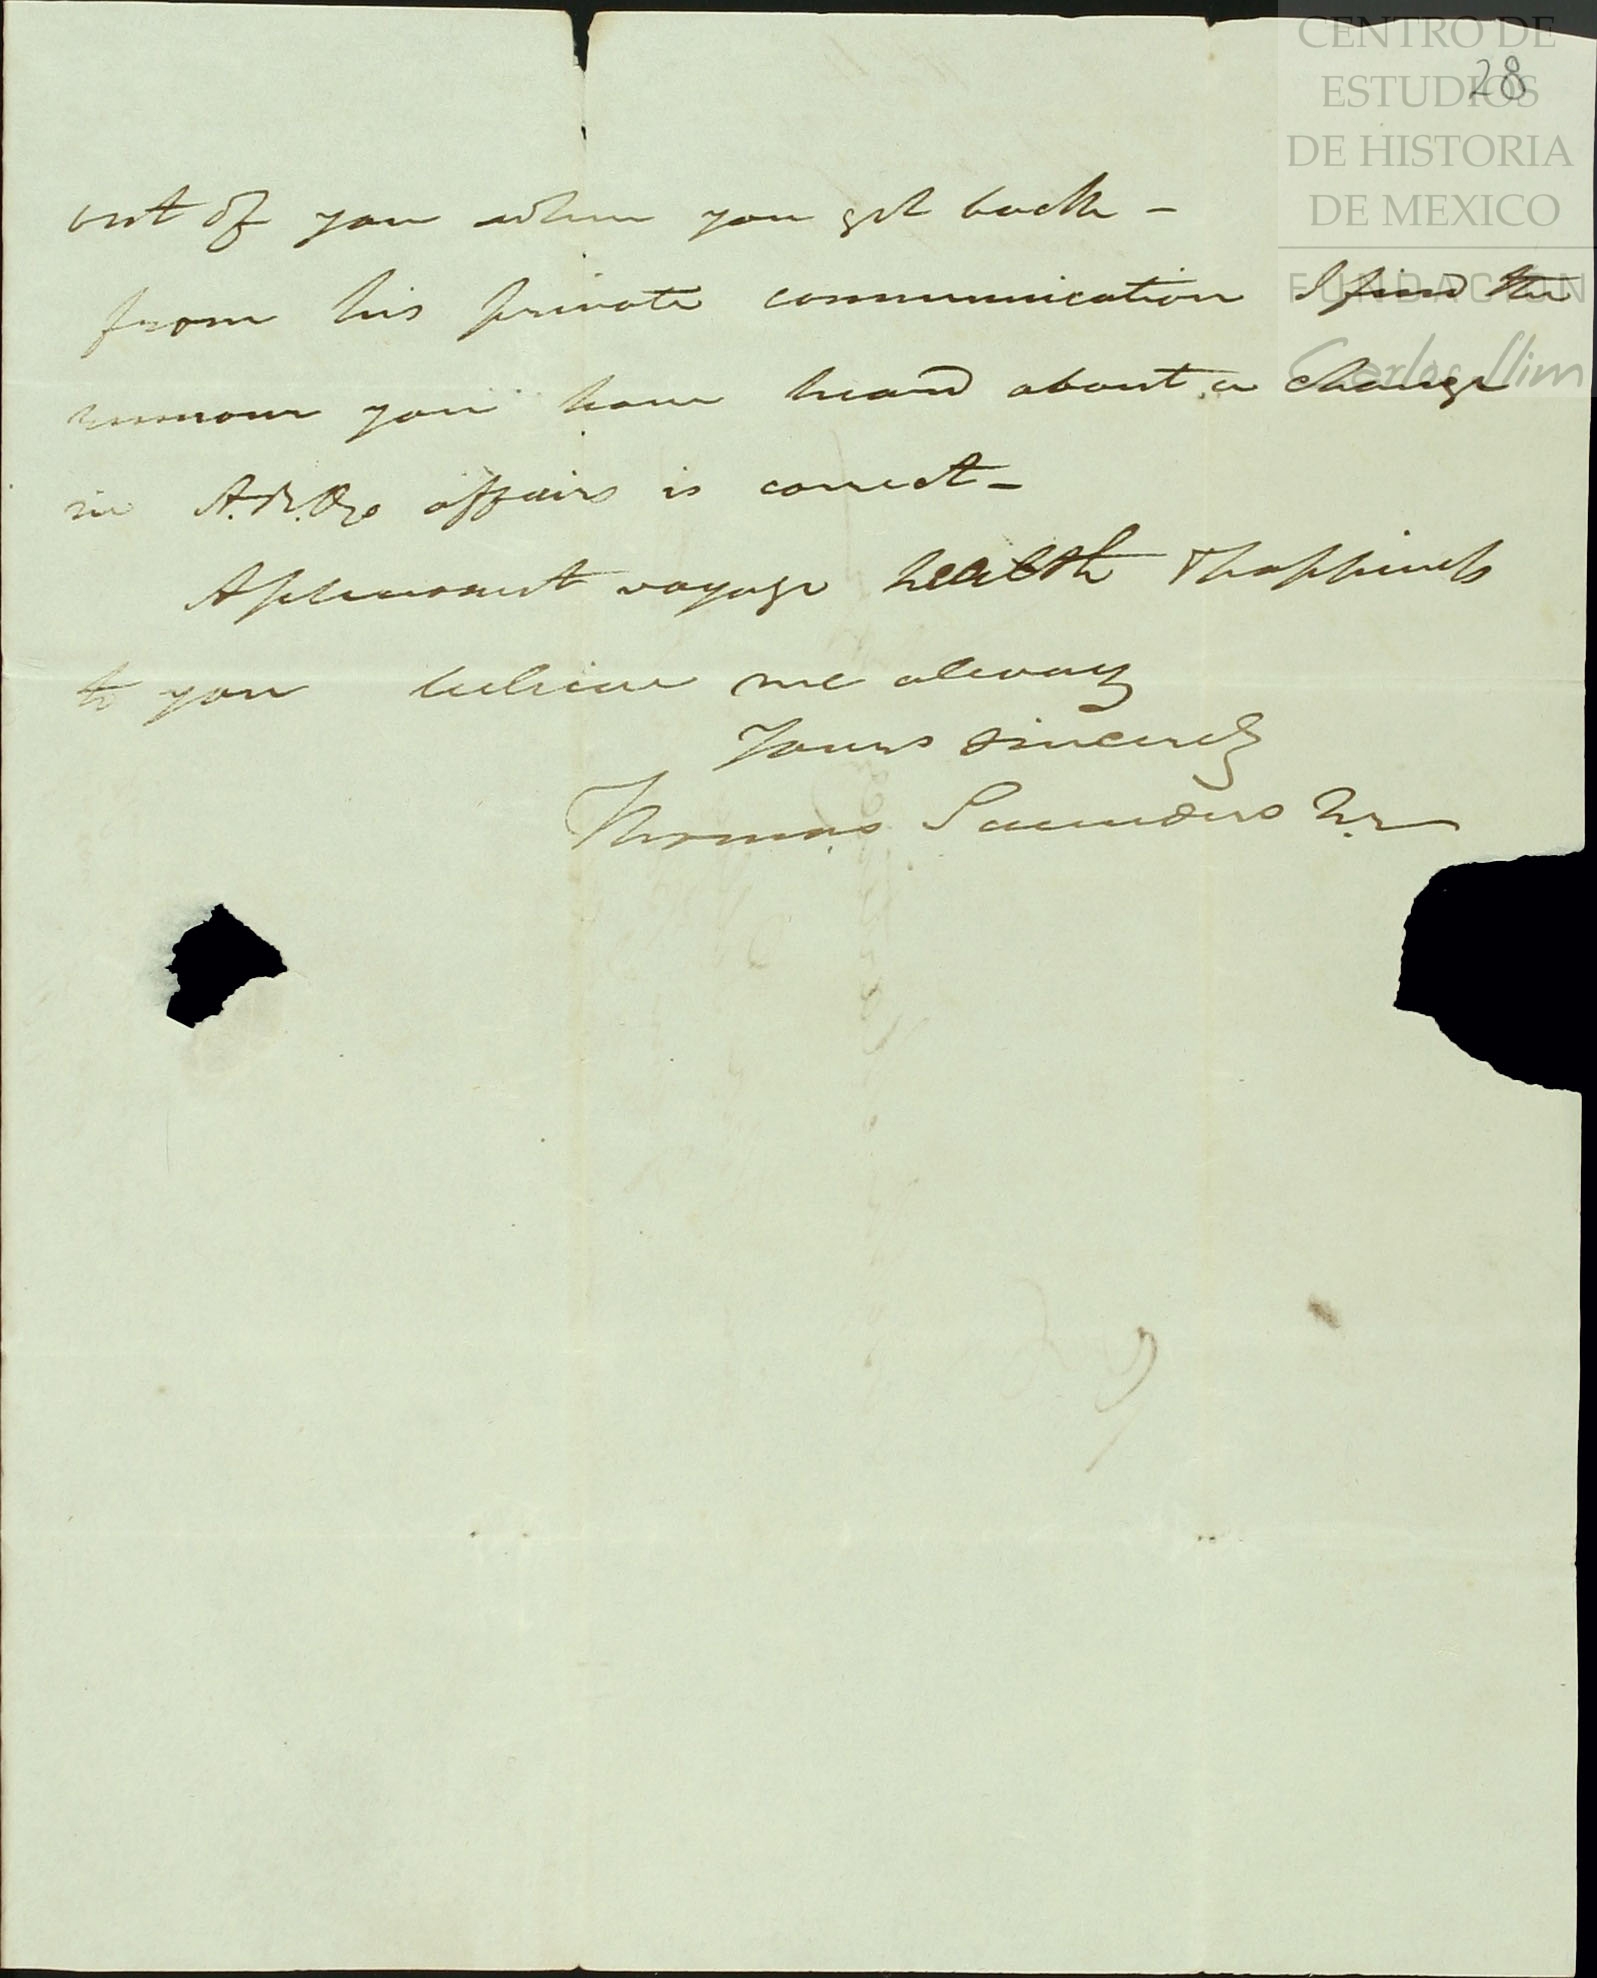 CENTRO DE
ESTUDIOS
DE HISTORIA
DE MEXICO
FUNDACIÓN
Carlos Slim
28
out of you when you get back –
from his private communication I find the
rumour you have heard about a change
in A. R. affairs is correct –
A pleasant voyage health & happiness
to you believe me alway
Yours sincerely
Thomas Saunders Jr